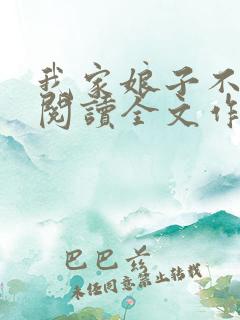 我家娘子不
閱讀全文作
巴巴爺
未經同意禁止轉載